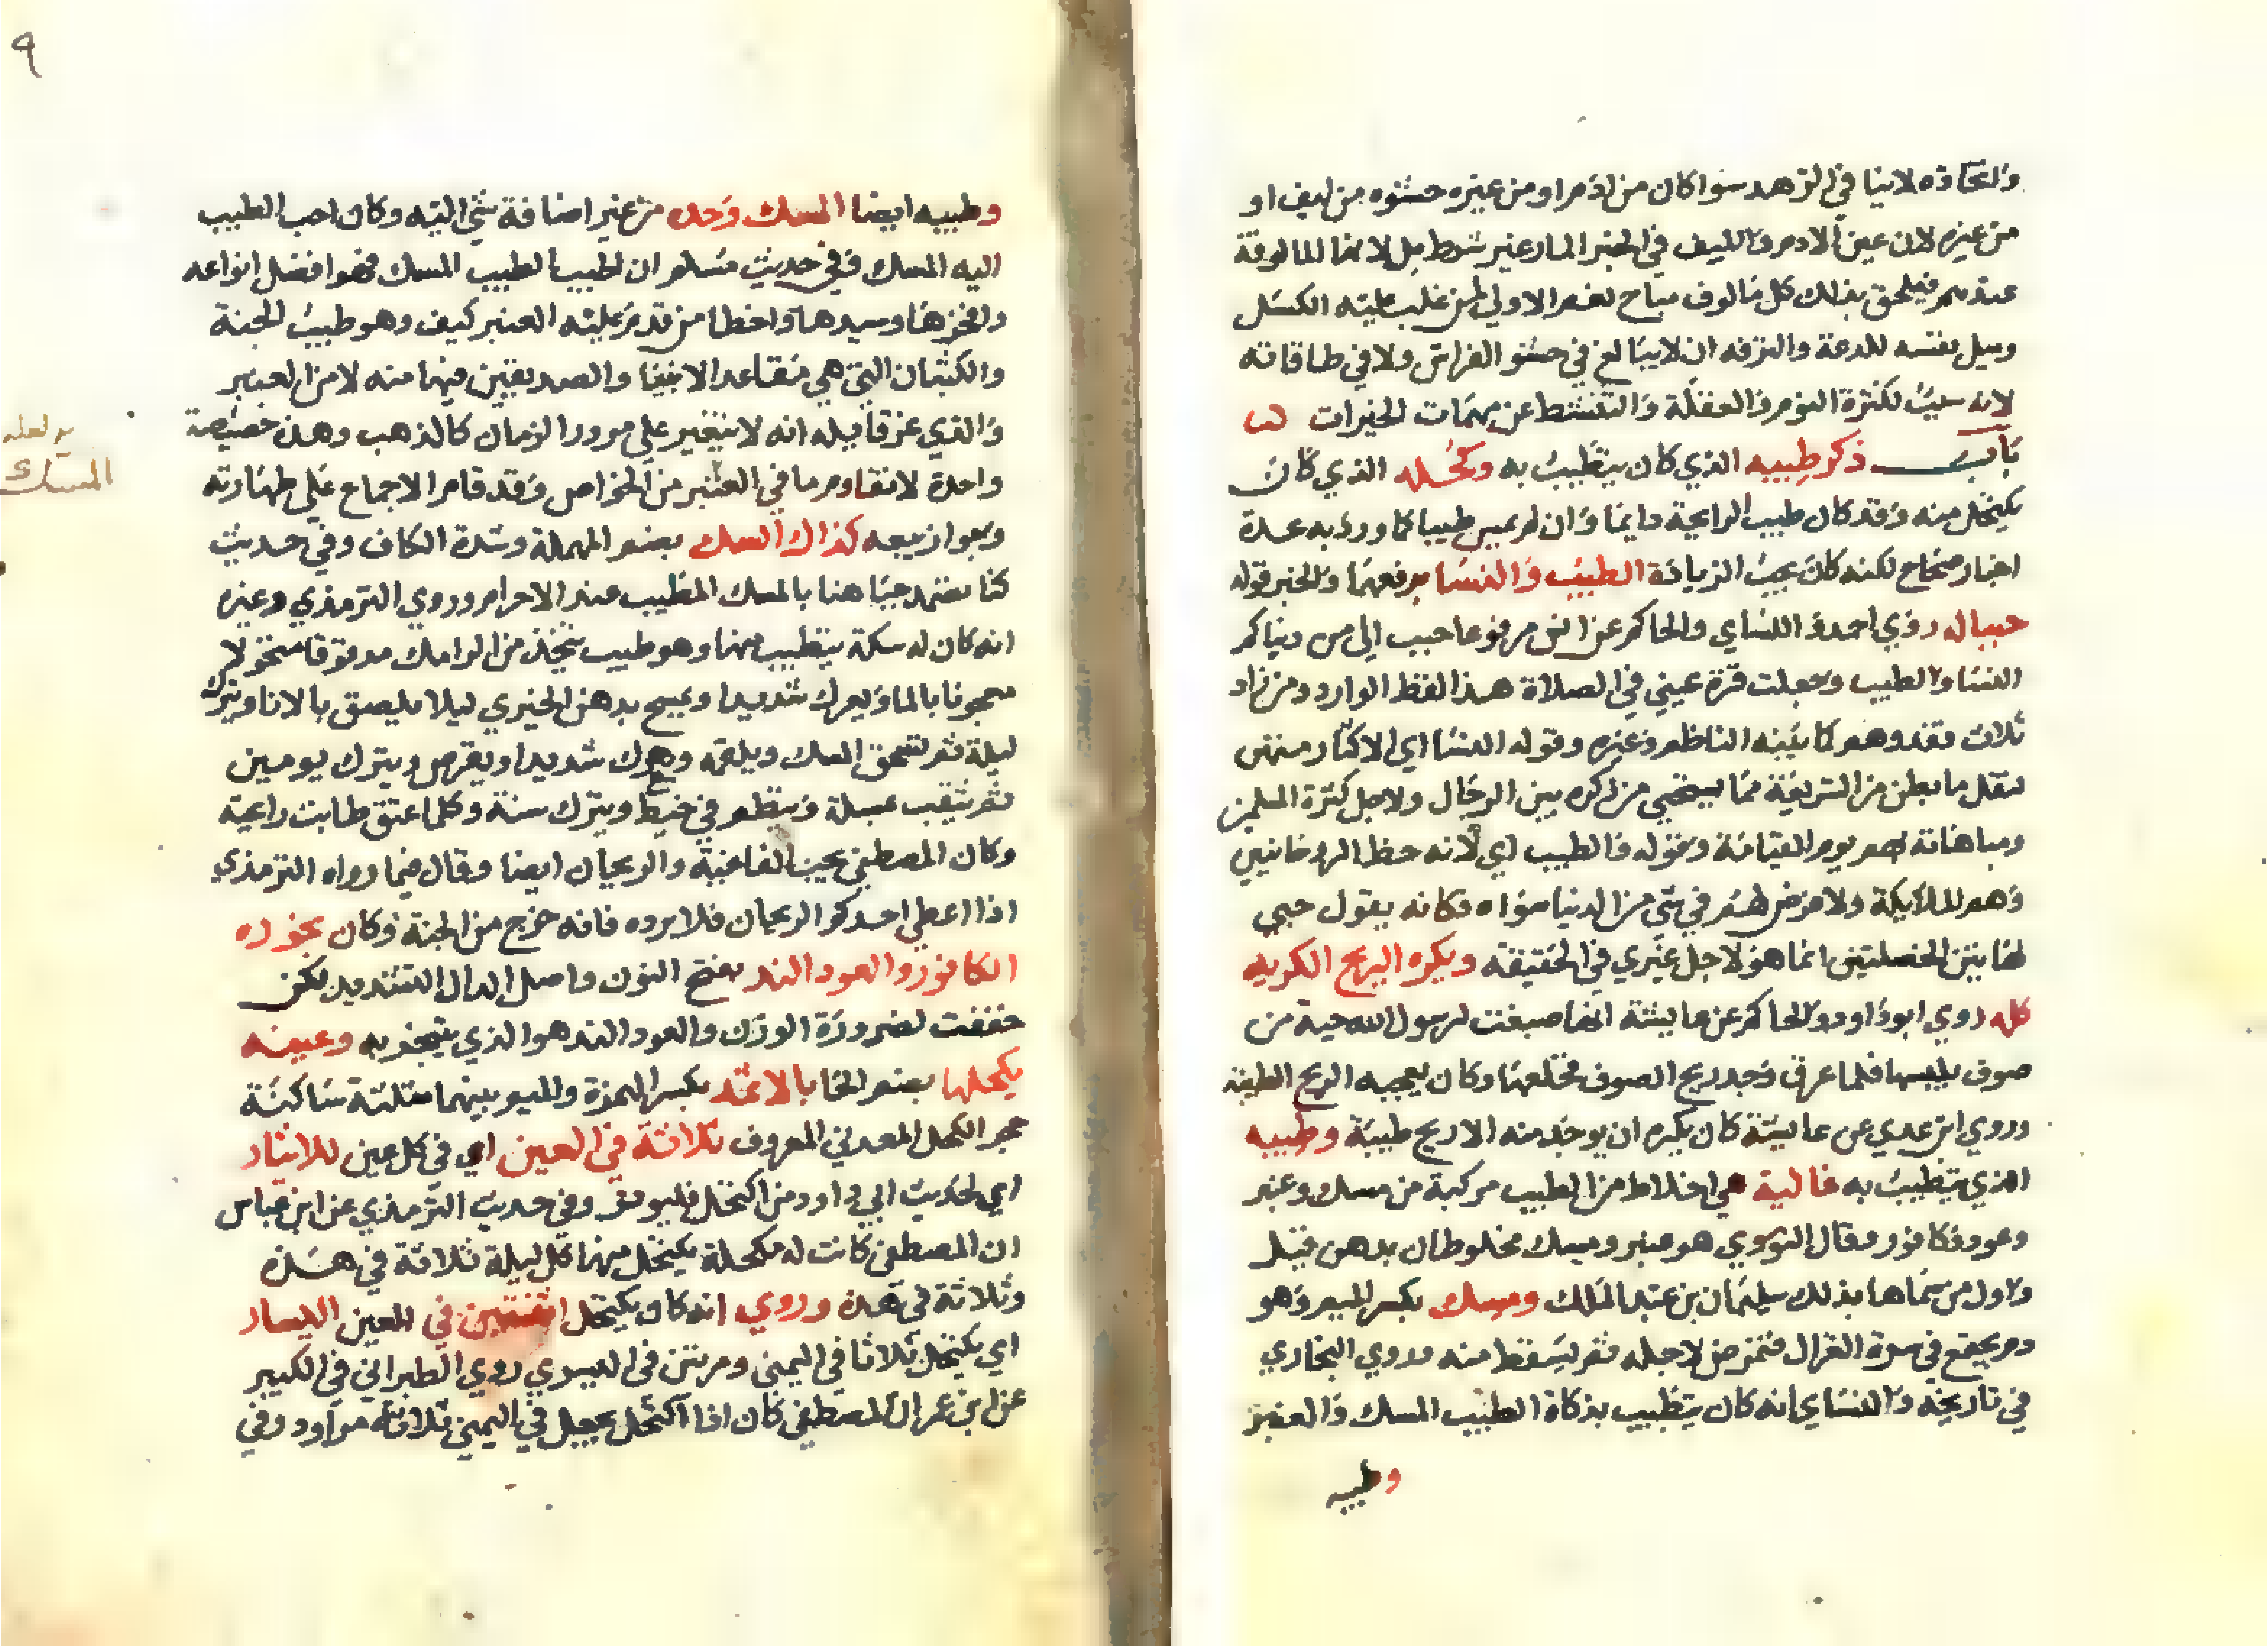 واتخاذه لا ينافي الزهد سوا كان من ادم او من غيره حشوه من ليف او
من غيره لان عين الادم والليف في الخبر المار غير شرط بل لانها المالوفة
عندهم فيلحق بذلك كل مالوف مباح نعم الاولي لمن غلب عليه الكسل
وميل نفسه للدعة والترفه ان لا يبالغ في حشو الفراش ولا في طاقاته
لانه سبب لكثرة النوم والغفلة والتثبط عن مهمات الخيرات
باب ذكر طيبه الذي كان يتطيب به وكحله الذي كان
يكتحل منه وقد كان طيب الرايحة دايما وان لم يمس طيبا كما ورد به عدة
اخبار صحاح لكنه كان يحب الزيادة الطيب والنسا برفعهما والخبر قوله
حببا له روي احمد والنساي والحاكم عن انس مرفوعا حبب الي من دنياكم
النسا والطيب وجعلت قرة عيني في الصلاة هذا لفظ الوارد ومن زاد
ثلاث فقد وهم كما بينه الناظم وغيره وقوله النسا اي الاكثار منهن
لنقل ما بطن من الشريعة مما يستحيي من ذكره بين الرجال ولاجل كثرة المسلمين
ومباهاته بهم يوم القيامة وقوله فالطيب اي لانه حظ الروحانيين
وهم الملايكة ولا غرض لهم في شي من الدنيا سواه فكانه يقول حبي
لهاتين الخصلتين انما هو لاجل غيري في الحقيقة ويكره الريح الكريه
كله روي ابو داود والحاكم عن عايشة انها صبغت لرسول الله جبة من
صوف يلبسها فلما عرق وجد ريح الصوف فخلعها وكان يعجبه الريح الطيبة
وروي ابن عدي عن عايشة كان يكره ان يوجد منه الا ريح طيبة وطيبه
الذي يتطيب به غالية هي اخلاط من الطيب مركبة من مسك وعنبر
وعود وكافور وقال النووي هو عنبر ومسك مخلوطان بدهن قيل
واول من سماها بذلك سليمان بن عبد الملك ومسك بكسر الميم وهو
دم يجتمع في سرة الغزال فتمرض لاجله ثم يسقط منه وروي البخاري
في تاريخه والنساي انه كان يتطيب بذكاة الطيب المسك والعنبر
وطيبه
٩
وطيبه ايضا المسك وحده من غير اضافة شي اليه وكان احب الطيب
اليه المسك ففي حديث مسلم ان اطيب الطيب المسك فهو افضل انواعه
وافخرها وسيدها واخطا من قدم عليه العنبر كيف وهو طيب الجنة
والكثبان التي هي مقاعد الانبيا والصديقين فيها منه لا من العنبر
والذي غر قايله انه لا يتغير علي مرور الزمان كالذهب وهذه خصيصة
واحدة لا تقاوم ما في العنبر من الخواص وقد قام الاجماع علي طهارته
وجواز بيعه كذاك السك بضم المهملة وشدة الكاف وفي حديث
كنا نضمد جباهنا بالمسك المطيب عند الاحرام وروي الترمذي وغيره
انه كان له سكة يتطيب منها وهو طيب يتخذ من الرامك مدقوقا منخولا
معجونا بالما ويعرك شديدا ويمسح بدهن الخيري ليلا يلصق بالانا ويترك
ليلة ثم يسحق المسك ويلقمه ويعرك شديدا ويقرص ويترك يومين
ثم يثقب بمسلة وينظم في خيط ويترك سنة وكلما عتق طابت رايحته
وكان المصطفي يحب الفاغية والريحان ايضا وقال فيما رواه الترمذي
اذا اعطي احدكم الريحان فلا يرده فانه خرج من الجنة وكان بخوره
الكافور والعود الند بفتح النون واصل الدال التشديد لكن
خففت لضرورة الوزن والعود الند هو الذي يتبخر به وعينه
يكحلها بضم الحا بالاثمد بكسر الهمزة والميم بينهما مثلثة ساكنة
حجر الكحل المعدني المعروف ثلاثة في العين اي في كل عين للايتار
اي لحديث ابي داود من اكتحل فليوتر وفي حديث الترمذي عن ابن عباس
ان المصطفي كانت له مكحلة يكتحل منها كل ليلة ثلاثة في هذه
وثلاثة في هذه وروي انه كان يكتحل اثنتين في العين اليسار
اي يكتحل ثلاثا في اليمني ومرتين في اليسري روي الطبراني في الكبير
عن ابن عمر ان المصطفي كان اذا اكتحل يجعل في اليمني ثلاثة مراود وفي
لعله
المسك